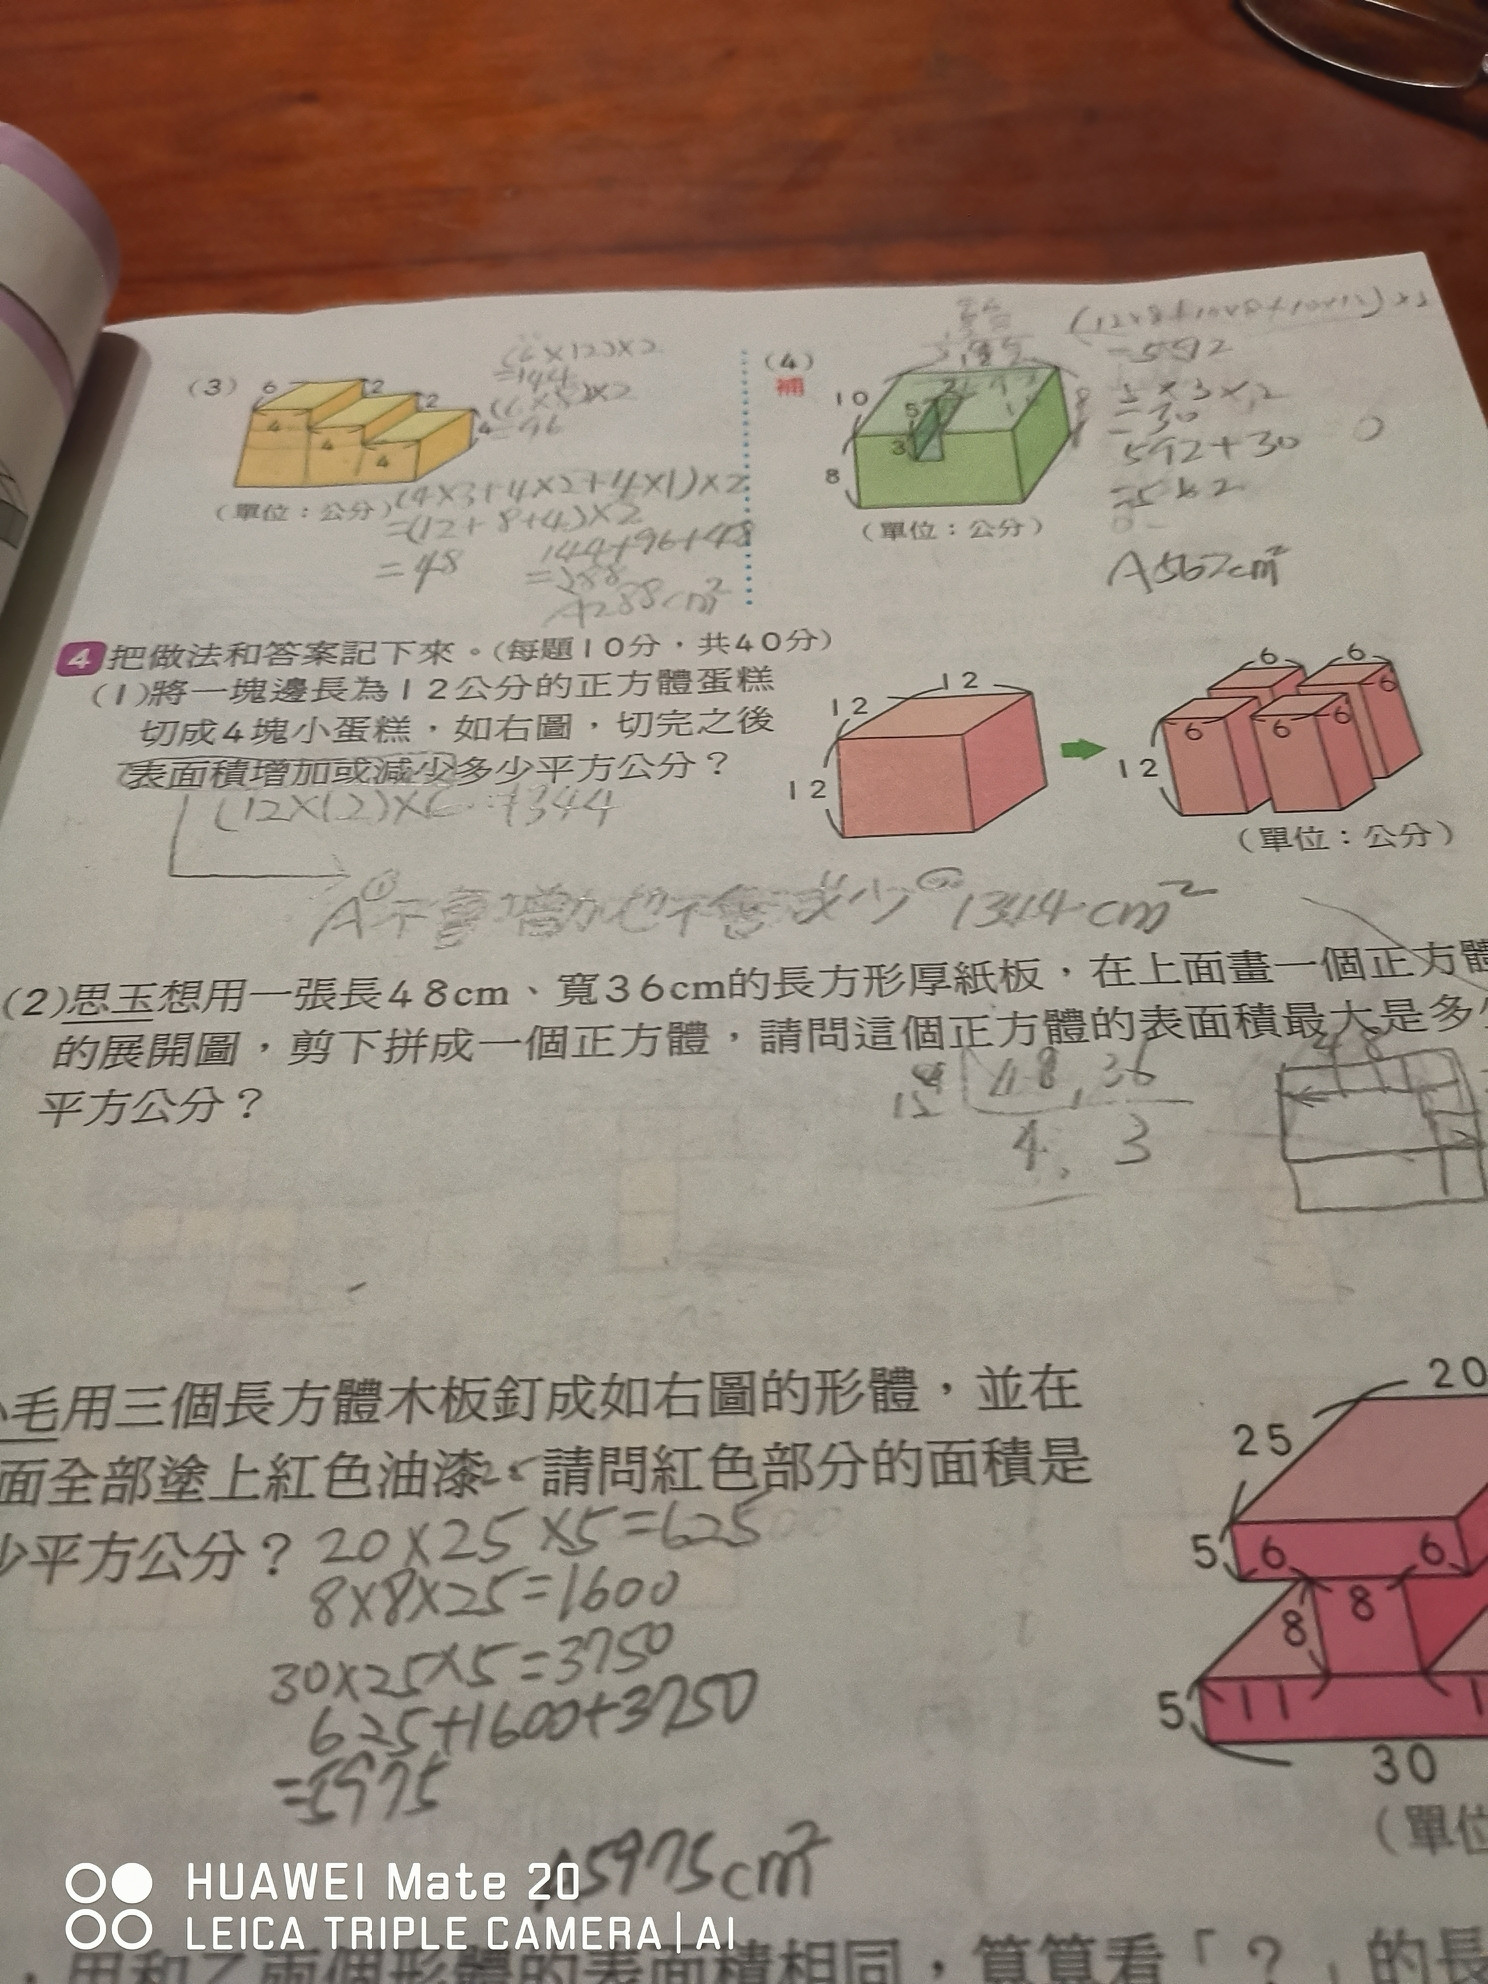 (3)
6
2
2
4
4
4
4
(單位：公分)
(6×12)×2
=144
(6×8)×2
=96
(4×3+4×2+4×1)×2
=(12+8+4)×2
=48
144+96+48
=288
A288cm²
(4)
補
10
8
5
3
2
12
(單位：公分)
(12×8+10×8+10×12)×2
=592
×3×2
=30
592+30
A562cm²
4 把做法和答案記下來。(每題10分，共40分)
(1)將一塊邊長為12公分的正方體蛋糕
切成4塊小蛋糕，如右圖，切完之後
表面積增加或減少多少平方公分？
12
12
12
6
6
6
6
6
6
12
(單位：公分)
A①不會增加也不會 少②1344cm²
(2)思玉想用一張長48cm、寬36cm的長方形厚紙板，在上面畫一個正方體
的展開圖，剪下拼成一個正方體，請問這個正方體的表面積最大是多少
平方公分？
12
48, 36
4, 3
48
毛用三個長方體木板釘成如右圖的形體，並在
面全部塗上紅色油漆。請問紅色部分的面積是
少平方公分？
20×25×5=625
8×8×25=1600
30×25×5=3750
625+1600+3750
=5975
A5975cm²
20
25
5
6
6
8
8
5
11
1
30
(單位
HUAWEI Mate 20
LEICA TRIPLE CAMERA | AI
兩個形體的表面積相同，算算看「？」的長